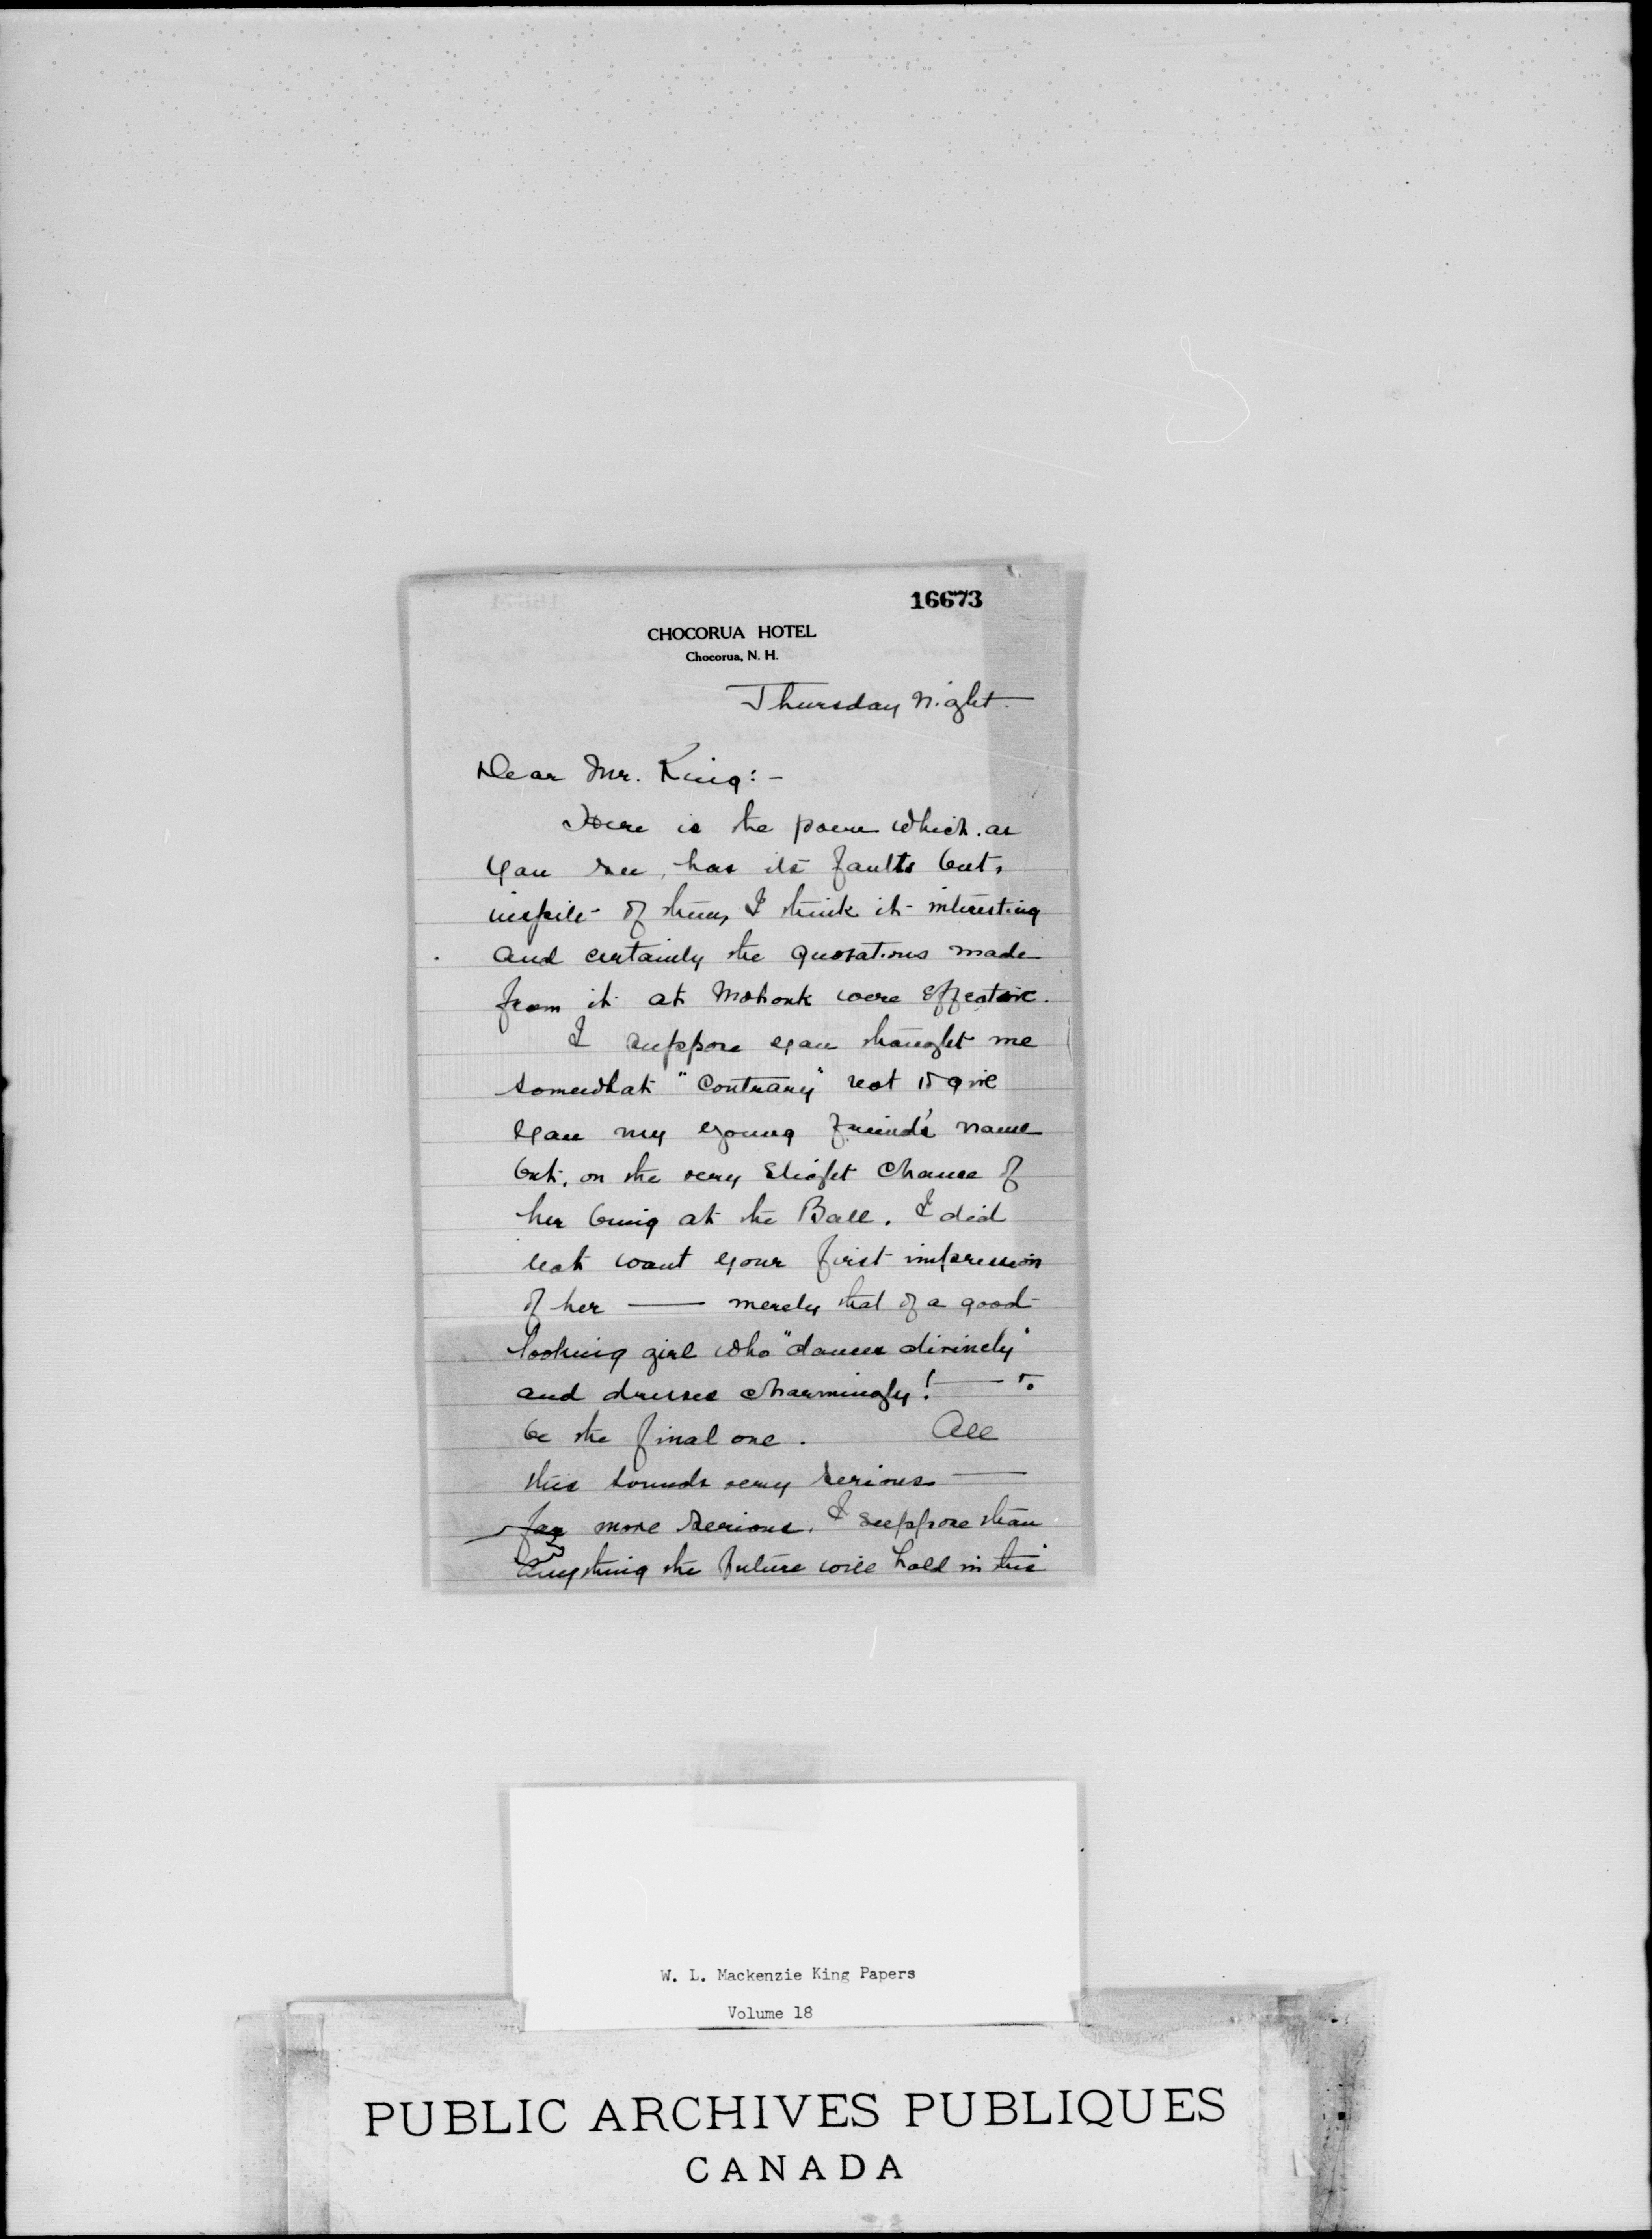 16673
CHOCORUA HOTEL
Chocorua, N. H.
Thursday night.
Dear Mr. King:-
Here is the poem which, as
you see, has its faults but,
inspite of them, I think it interesting
and certainly the quotations made
from it at Mohonk were effective.
I suppose you thought me
somewhat "contrary" not to give
you my young friend's name
but, on the very slight chance of
her being at the Ball, I did
not want your first impression
of her — merely that of a good-
looking girl who "dances divinely"
and dresses charmingly! — to
be the final one. All
this sounds very serious —
far more serious, I suppose than
anything the future will hold in this
W. L. Mackenzie King Papers
Volume 18
PUBLIC ARCHIVES PUBLIQUES
CANADA